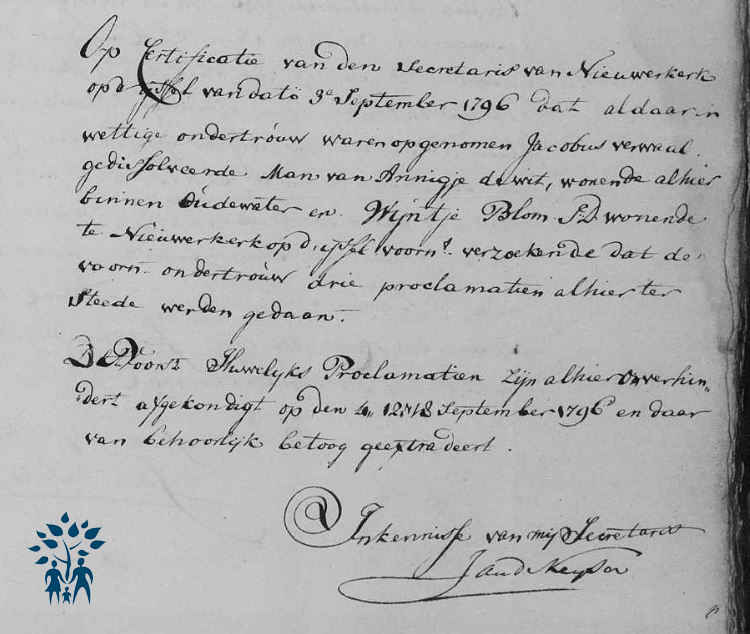 Op Certificatie van den Secretaris van Nieuwerkerk
op d ijssel van dato 3e September 1796 dat aldaar in
wettige ondertrouw waren opgenomen Jacobus verwaal
gedissolveerde Man van Annigje de wit, wonende alhier
binnen Oudewater en Wijntje Blom J:D wonende
te Nieuwerkerk op d ijssel voorn:t verzoekende dat de
voorn: ondertrouw drie proclamatien alhier ter
Steede werden gedaan.
De Voorsz Huwelyks Proclamatien zijn alhier onverhin„
dert afgekondigt op den 4„ 12 &18 September 1796 en daar
van behoorlijk betoog geextradeert.
In kennisse van mij Secretaris
J van d Keyser